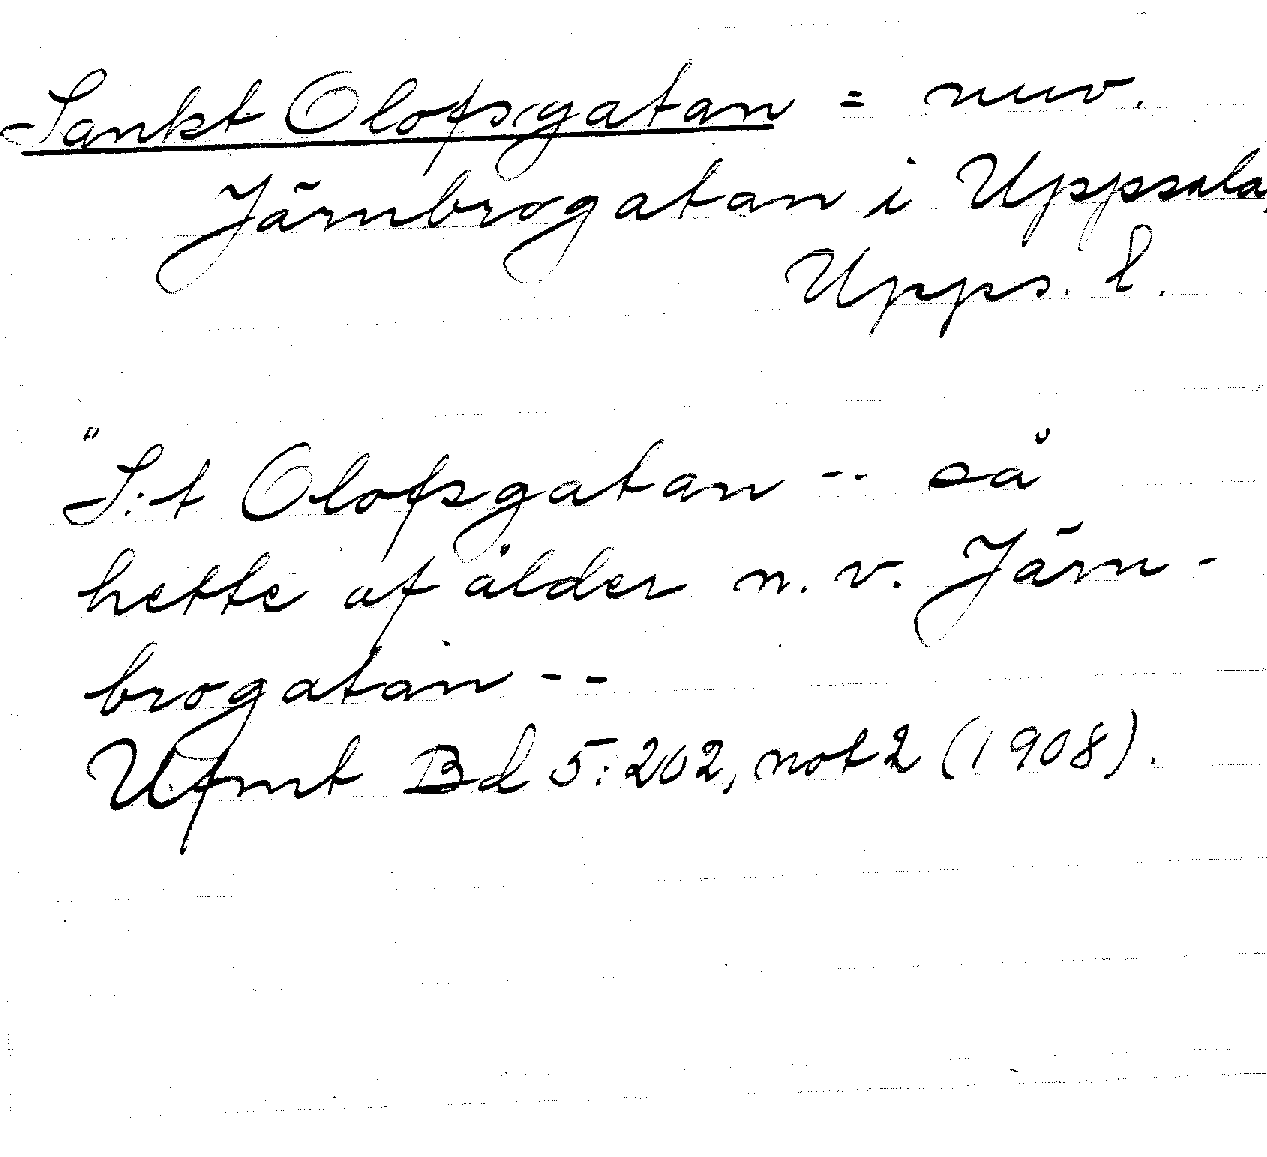 Sankt Olofsgatan = nuv.
Järnbrogatan i Uppsala,
Upps. l.
"S:t Olofsgatan -- så
hette af ålder n.v. Järn-
brogatan --
Ufmt Bd 5:202, not 2 (1908).